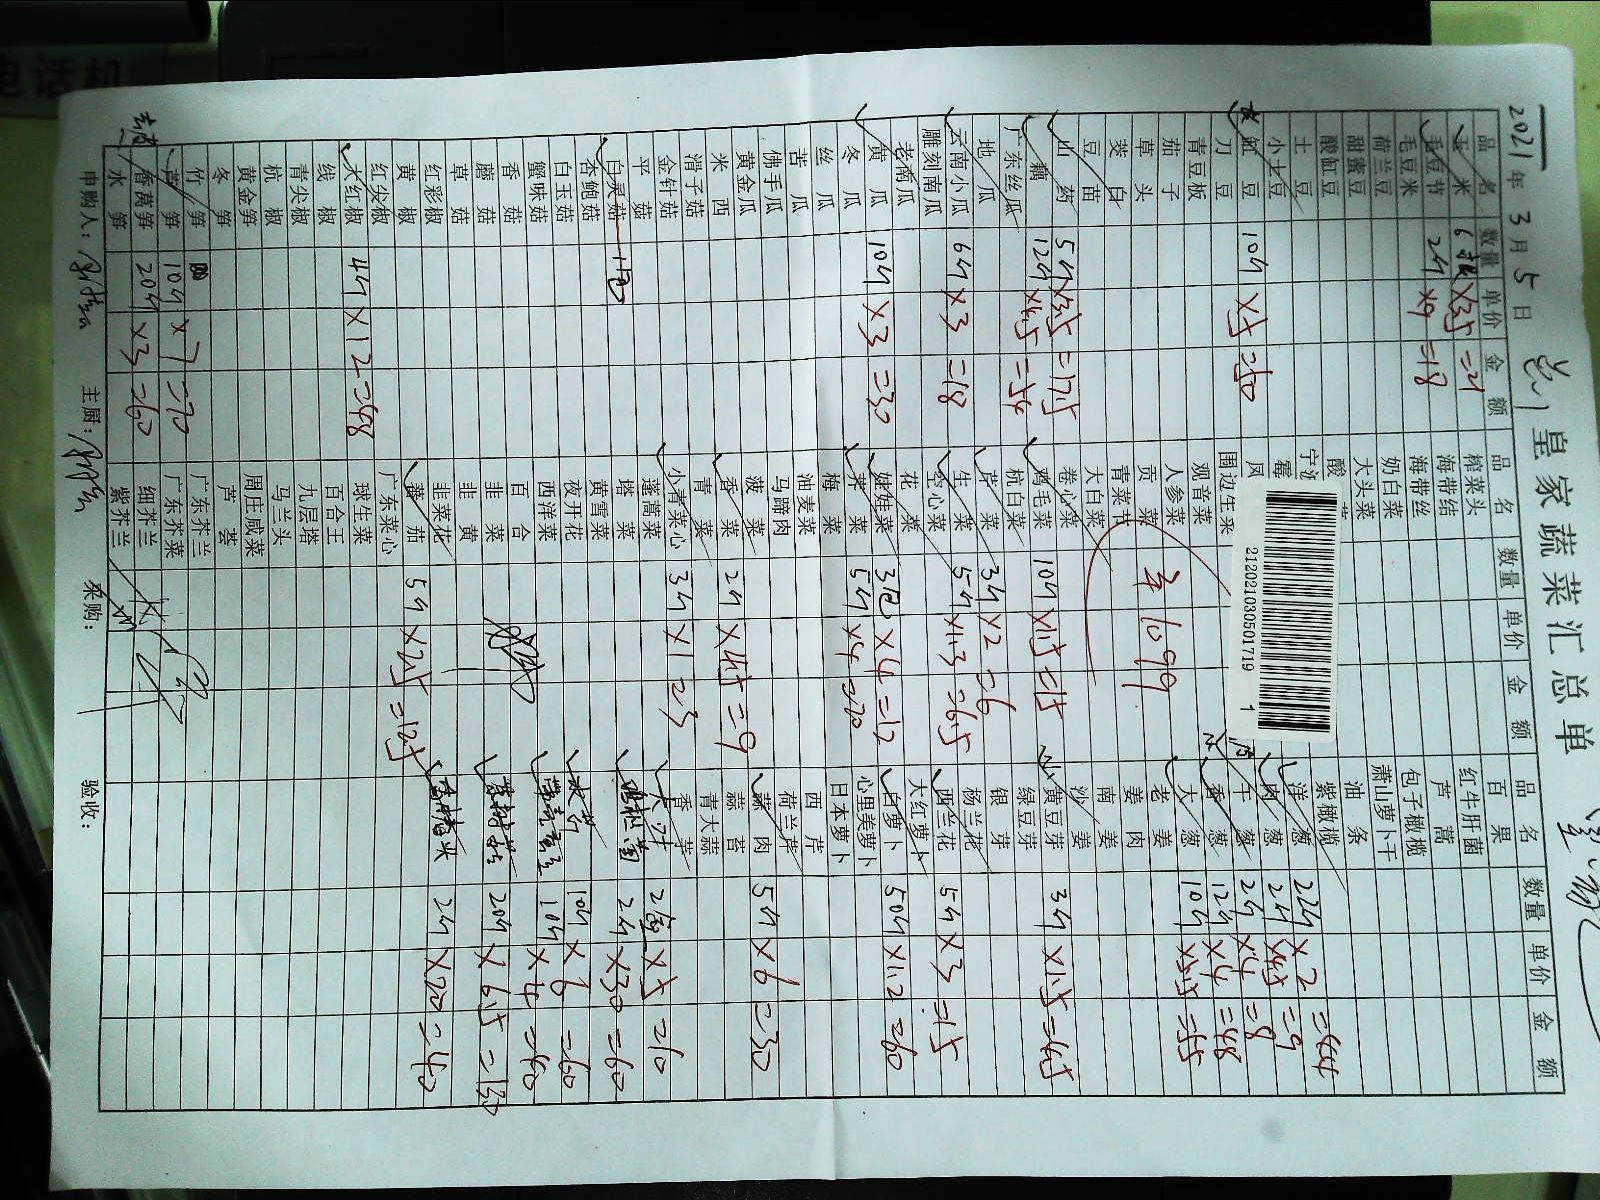 电话机
皇家蔬菜汇总单
2021年3月5日
品名 数量 单价 金额 品名 数量 单价 金额 品名 数量 单价 金额
玉米 6根 ×3.5 =21 榨菜头 百果
毛豆节 海带结 红牛肝菌
毛豆米 2斤 ×9 =18 海带丝 芦蒿
荷兰豆 奶白菜 包子橄榄
甜蜜豆 大头菜 萧山萝卜干
酸缸豆 酸 油条
土豆 宁波 紫橄榄
小土豆 霉 洋葱 22斤 ×2 =44
缸豆 10斤 ×5 =50 凤 肉葱 2斤 ×4.5 =9
刀豆 围边生菜 干葱 2斤 ×4 =8
青豆板 观音菜 香葱 12斤 ×4 =48
茄子 人参菜 大葱 10斤 ×5.5 =55
草头 贡菜 老姜
茭白 青菜节 姜肉
豆苗 大白菜 南姜
山药 5斤 ×3.5 =17.5 卷心菜 沙姜
藕 12斤 ×4.5 =54 鸡毛菜 10斤 ×1.5 =15 黄豆芽 3斤 ×1.5 =4.5
广东丝瓜 杭白菜 绿豆芽
地瓜 芹菜 3斤 ×2 =6 银芽
云南小瓜 6斤 ×3 =18 生菜 5斤 ×1.3 =6.5 杨兰花
雕刻南瓜 空心菜 西兰花 5斤 ×3 =15
老南瓜 花菜 大红萝卜
黄瓜 10斤 ×3 =30 娃娃菜 3包 ×4 =12 白萝卜 50斤 ×1.2 =60
冬瓜 茶菜 5斤 ×4 =20 心里美萝卜
丝瓜 梅菜 日本萝卜
苦瓜 油麦菜 西芹
佛手瓜 马蹄肉 荷兰芹
黄金瓜 菠菜 蒜肉 5斤 ×6 =30
米西 香菜 2斤 ×4.5 =9 蒜苔
滑子菇 青菜 青大蒜
金针菇 小青菜心 3斤 ×1 =3 香芽
平菇 蓬蒿菜 ×5 =10
白灵菇 1包 塔菜 2斤 ×30 =60
杏鲍菇 黄雪菜
白玉菇 夜开花 10斤 ×6 =60
蟹味菇 西洋菜 10斤 ×4 =40
香菇 百合
蘑菇 韭菜 20斤 ×6.5 =130
草菇 韭黄
红彩椒 韭菜花 2斤 ×20 =40
黄椒 蕃茄 5斤 ×2.5 =12.5
红尖椒 广东菜心
大红椒 4斤 ×12 =48 球生菜
线椒 百合王
青尖椒 九层塔
杭椒 马兰头
黄金笋 周庄咸菜
冬笋 芦荟
竹笋 广东芥兰
芦笋 10斤 ×7 =70 广东芥菜
香莴笋 20斤 ×3 =60 细芥兰
水笋 紫芥兰
1099
212021030501719 1
申购人： 主厨： 采购： 验收：